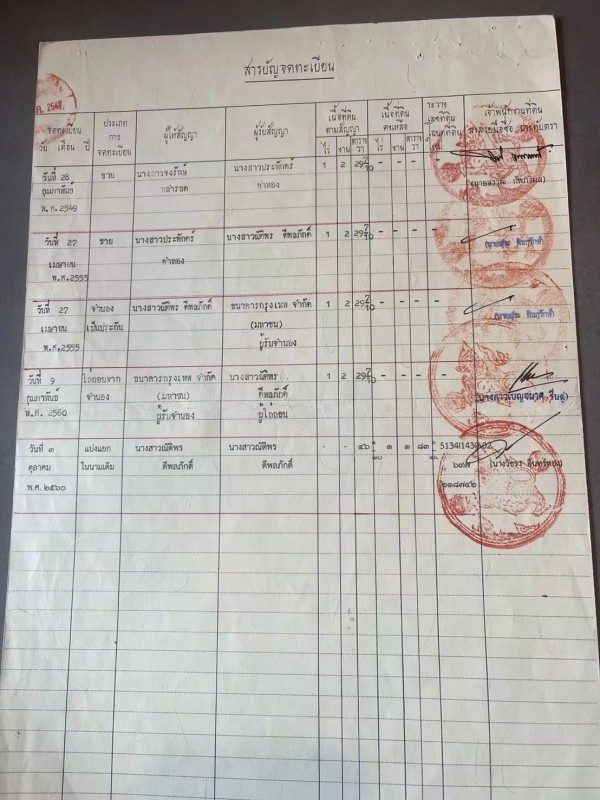 สารบัญจดทะเบียน
จดทะเบียน
วัน เดือน ปี
ประเภท
การ
จดทะเบียน
ผู้ให้สัญญา
ผู้รับสัญญา
เนื้อที่ดิน
ตามสัญญา
ไร่ งาน ตารางวา
เนื้อที่ดิน
คงเหลือ
ไร่ งาน ตารางวา
ระวาง
เลขที่ดิน
โฉนดที่ดิน
เจ้าพนักงานที่ดิน
ลงลายมือชื่อ ประทับตรา
วันที่ 28 ขาย นางสาวจงรักษ์ นางสาวประภัศร์ 1 2 29 7/10 - - - -
กุมภาพันธ์ คำทอง
พ.ศ.2549
วันที่ 27 ขาย นางสาวประภัศร์ นางสาวณัติพร ดีพลภักดิ์ 1 2 29 7/10 - - - -
เมษายน คำทอง
พ.ศ.2555
วันที่ 27 จำนอง นางสาวณัติพร ดีพลภักดิ์ ธนาคารกรุงเทพ จำกัด 1 2 29 7/10 - - - -
เมษายน เป็นประกัน (มหาชน)
พ.ศ.2555 ผู้รับจำนอง
วันที่ 9 ไถ่ถอนจาก ธนาคารกรุงเทพ จำกัด นางสาวณัติพร 1 2 29 7/10 - - - -
กุมภาพันธ์ จำนอง (มหาชน) ดีพลภักดิ์
พ.ศ. 2560 ผู้รับจำนอง ผู้ไถ่ถอน
วันที่ ๓ แบ่งแยก นางสาวณัติพร นางสาวณัติพร - - ๔๖ ๑ ๑ ๘๓ 5134I1430-02
ตุลาคม ในนามเดิม ดีพลภักดิ์ ดีพลภักดิ์ ๖๙๗
พ.ศ. ๒๕๖๐ ๒๑๘๗๔๒